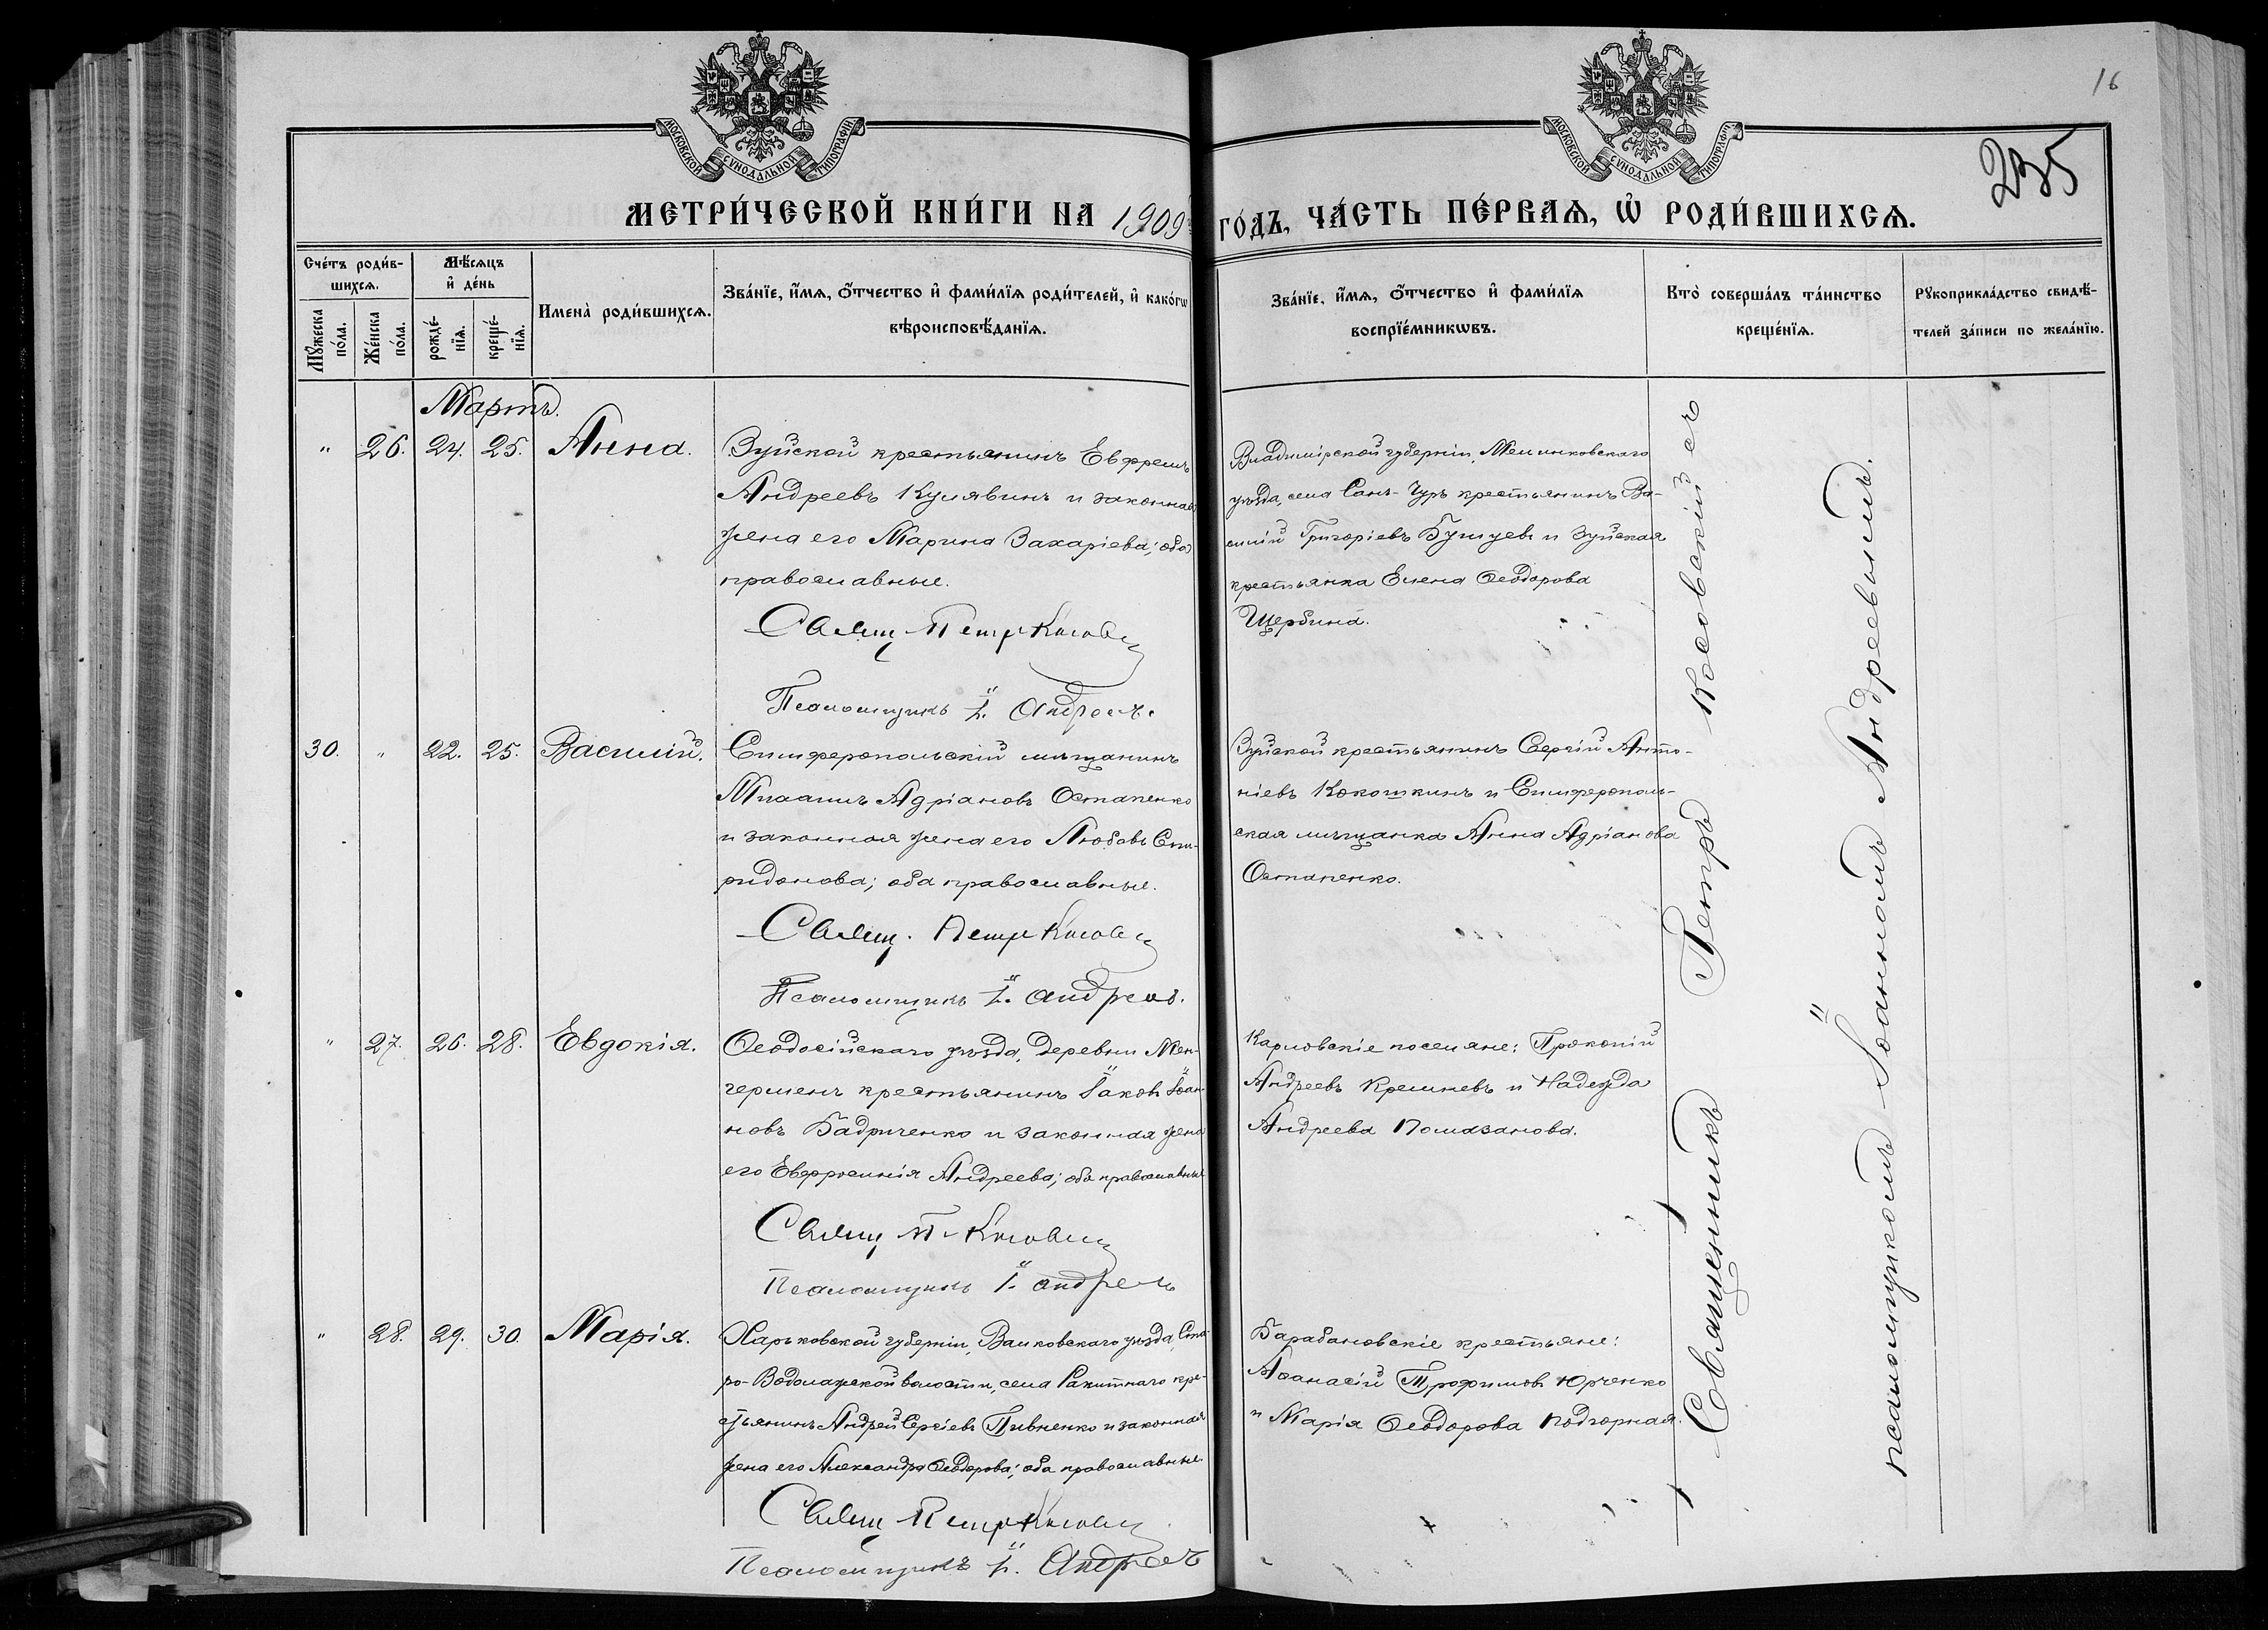 МОСКОВСКОЙ СѴНОДАЛЬНОЙ ТИПОГРАФІИ
МОСКОВСКОЙ СѴНОДАЛЬНОЙ ТИПОГРАФІИ
16
235
МЕТРИ́ЧЕСКОЙ КНИ́ГИ НА 1909
ГО́ДЪ, ЧА́СТЬ ПЕ́РВАѦ, Ѡ҆ РОДИ́ВШИХСѦ.
Сче́тъ роди́в-
шихсѧ.
Мѣ́сѧцъ
и҆ де́нь
Мꙋ́жеска
по́ла.
Же́нска
по́ла.
рожде́-
нїѧ.
креще́-
нїѧ.
Имена̀ роди́вшихсѧ.
Зва́нїе, и҆́мѧ, ѻ҆́тчество и҆ фами́лїѧ роди́телей, и҆ како́гѡ
вѣроисповѣ́данїѧ.
Зва́нїе, и҆́мѧ, ѻ҆́тчество и҆ фами́лїѧ
воспрїе́мникѡвъ.
Кто̀ соверша́лъ та́инство
креще́нїѧ.
Рꙋкоприкла́дство свидѣ́-
телей за́писи по жела́нїю.
Мартъ.
" 26. 24. 25. Анна.
Зуйской крестьянинъ Евфремъ
Андреевъ Кулявинъ и законная
жена его Марина Захаріева; оба
православные.
Свящ Петръ Косовск
Псаломщикъ І. Андреевъ
Владимірской губерніи, Меленковскаго
уѣзда, села Санъ-Чуръ крестьянинъ Ва-
силій Григоріевъ Бушуевъ и Зуйская
крестьянка Елена Ѳеодорова
Щербина.
30. " 22. 25. Василій.
Симферопольскій мѣщанинъ
Михаилъ Адріановъ Остапенко
и законная жена его Любовь Спи-
ридонова; оба православные.
Свящ. Петръ Косовск
Псаломщикъ І. Андреев.
Зуйской крестьянинъ Сергій Анто-
ніевъ Кокошкинъ и Симферополь-
ская мѣщанка Анна Адріанова
Остапенко.
" 27. 26. 28. Евдокія.
Ѳеодосійскаго уѣзда, деревни Мен-
герменъ крестьянинъ Іаковъ Іоан-
новъ Бадриченко и законная жена
его Евфросинія Андреева; оба православные
Свящ П Косовск
Псаломщикъ І. Андреевъ
Карловскіе поселяне: Прокопій
Андреевъ Кремневъ и Надежда
Андреева Помазанова.
" 28. 29. 30 Марія.
Харьковской губерніи, Валковскаго уѣзда, Ста-
ро-Водолажской волости, села Ракитнаго кре-
стьянинъ Андрей Сергіевъ Пивненко и законная
жена его Александра Ѳеодорова; оба православные
Свящ Петръ Косовск
Псаломщикъ І. Андреевъ
Барабановскіе крестьяне:
Аѳанасій Трофимовъ Юрченко
и Марія Ѳеодорова Подгорная.
Священникъ Петръ Косовскій съ
псаломщикомъ Іоанномъ Андреевымъ.